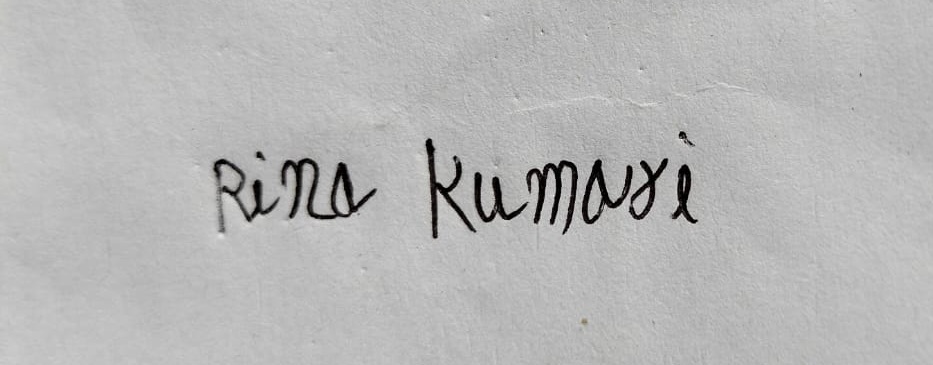 Rina Kumari